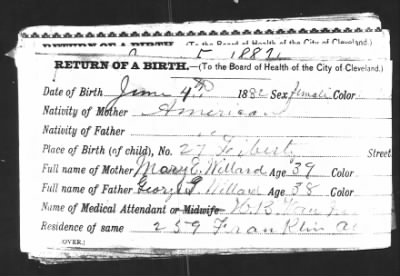 5 1882
RETURN OF A BIRTH. (To the Board of Health of the City of Cleveland.)
RETURN OF A BIRTH.—(To the Board of Health of the City of Cleveland.)
Date of Birth June 4th 1882 Sex female Color
Nativity of Mother American
Nativity of Father "
Place of Birth (of child), No. 27 Street
Full name of Mother Mary E. Willard Age 39 Color
Full name of Father George Willard Age 38 Color
Name of Medical Attendant or Midwife
Residence of same 259 Franklin
(OVER.)